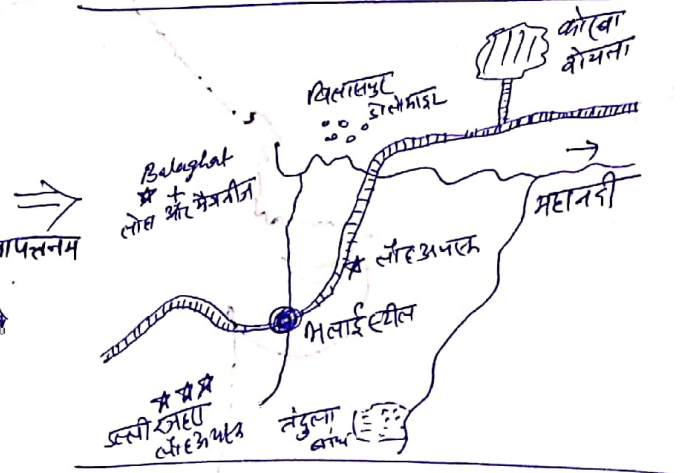 कोरबा
कोयला
बिलासपुर
डोलोमाइट
Balaghat
लोहा और मैगनीज
महानदी
लौह अयस्क
भिलाई स्टील
दल्ली राजहरा
लौह अयस्क
तंदुला
बांध